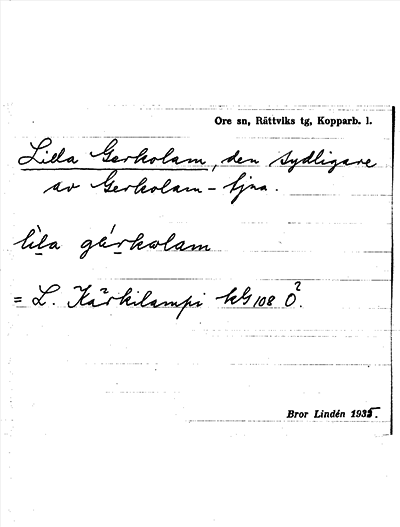 Ore sn, Rättviks tg, Kopparb. l.
Lilla Gerkolam, den sydligare
av Gerkolam-
lìla gérkolam
= L. Kärkilampi kG 108 Ö?
Bror Lindén 1935.